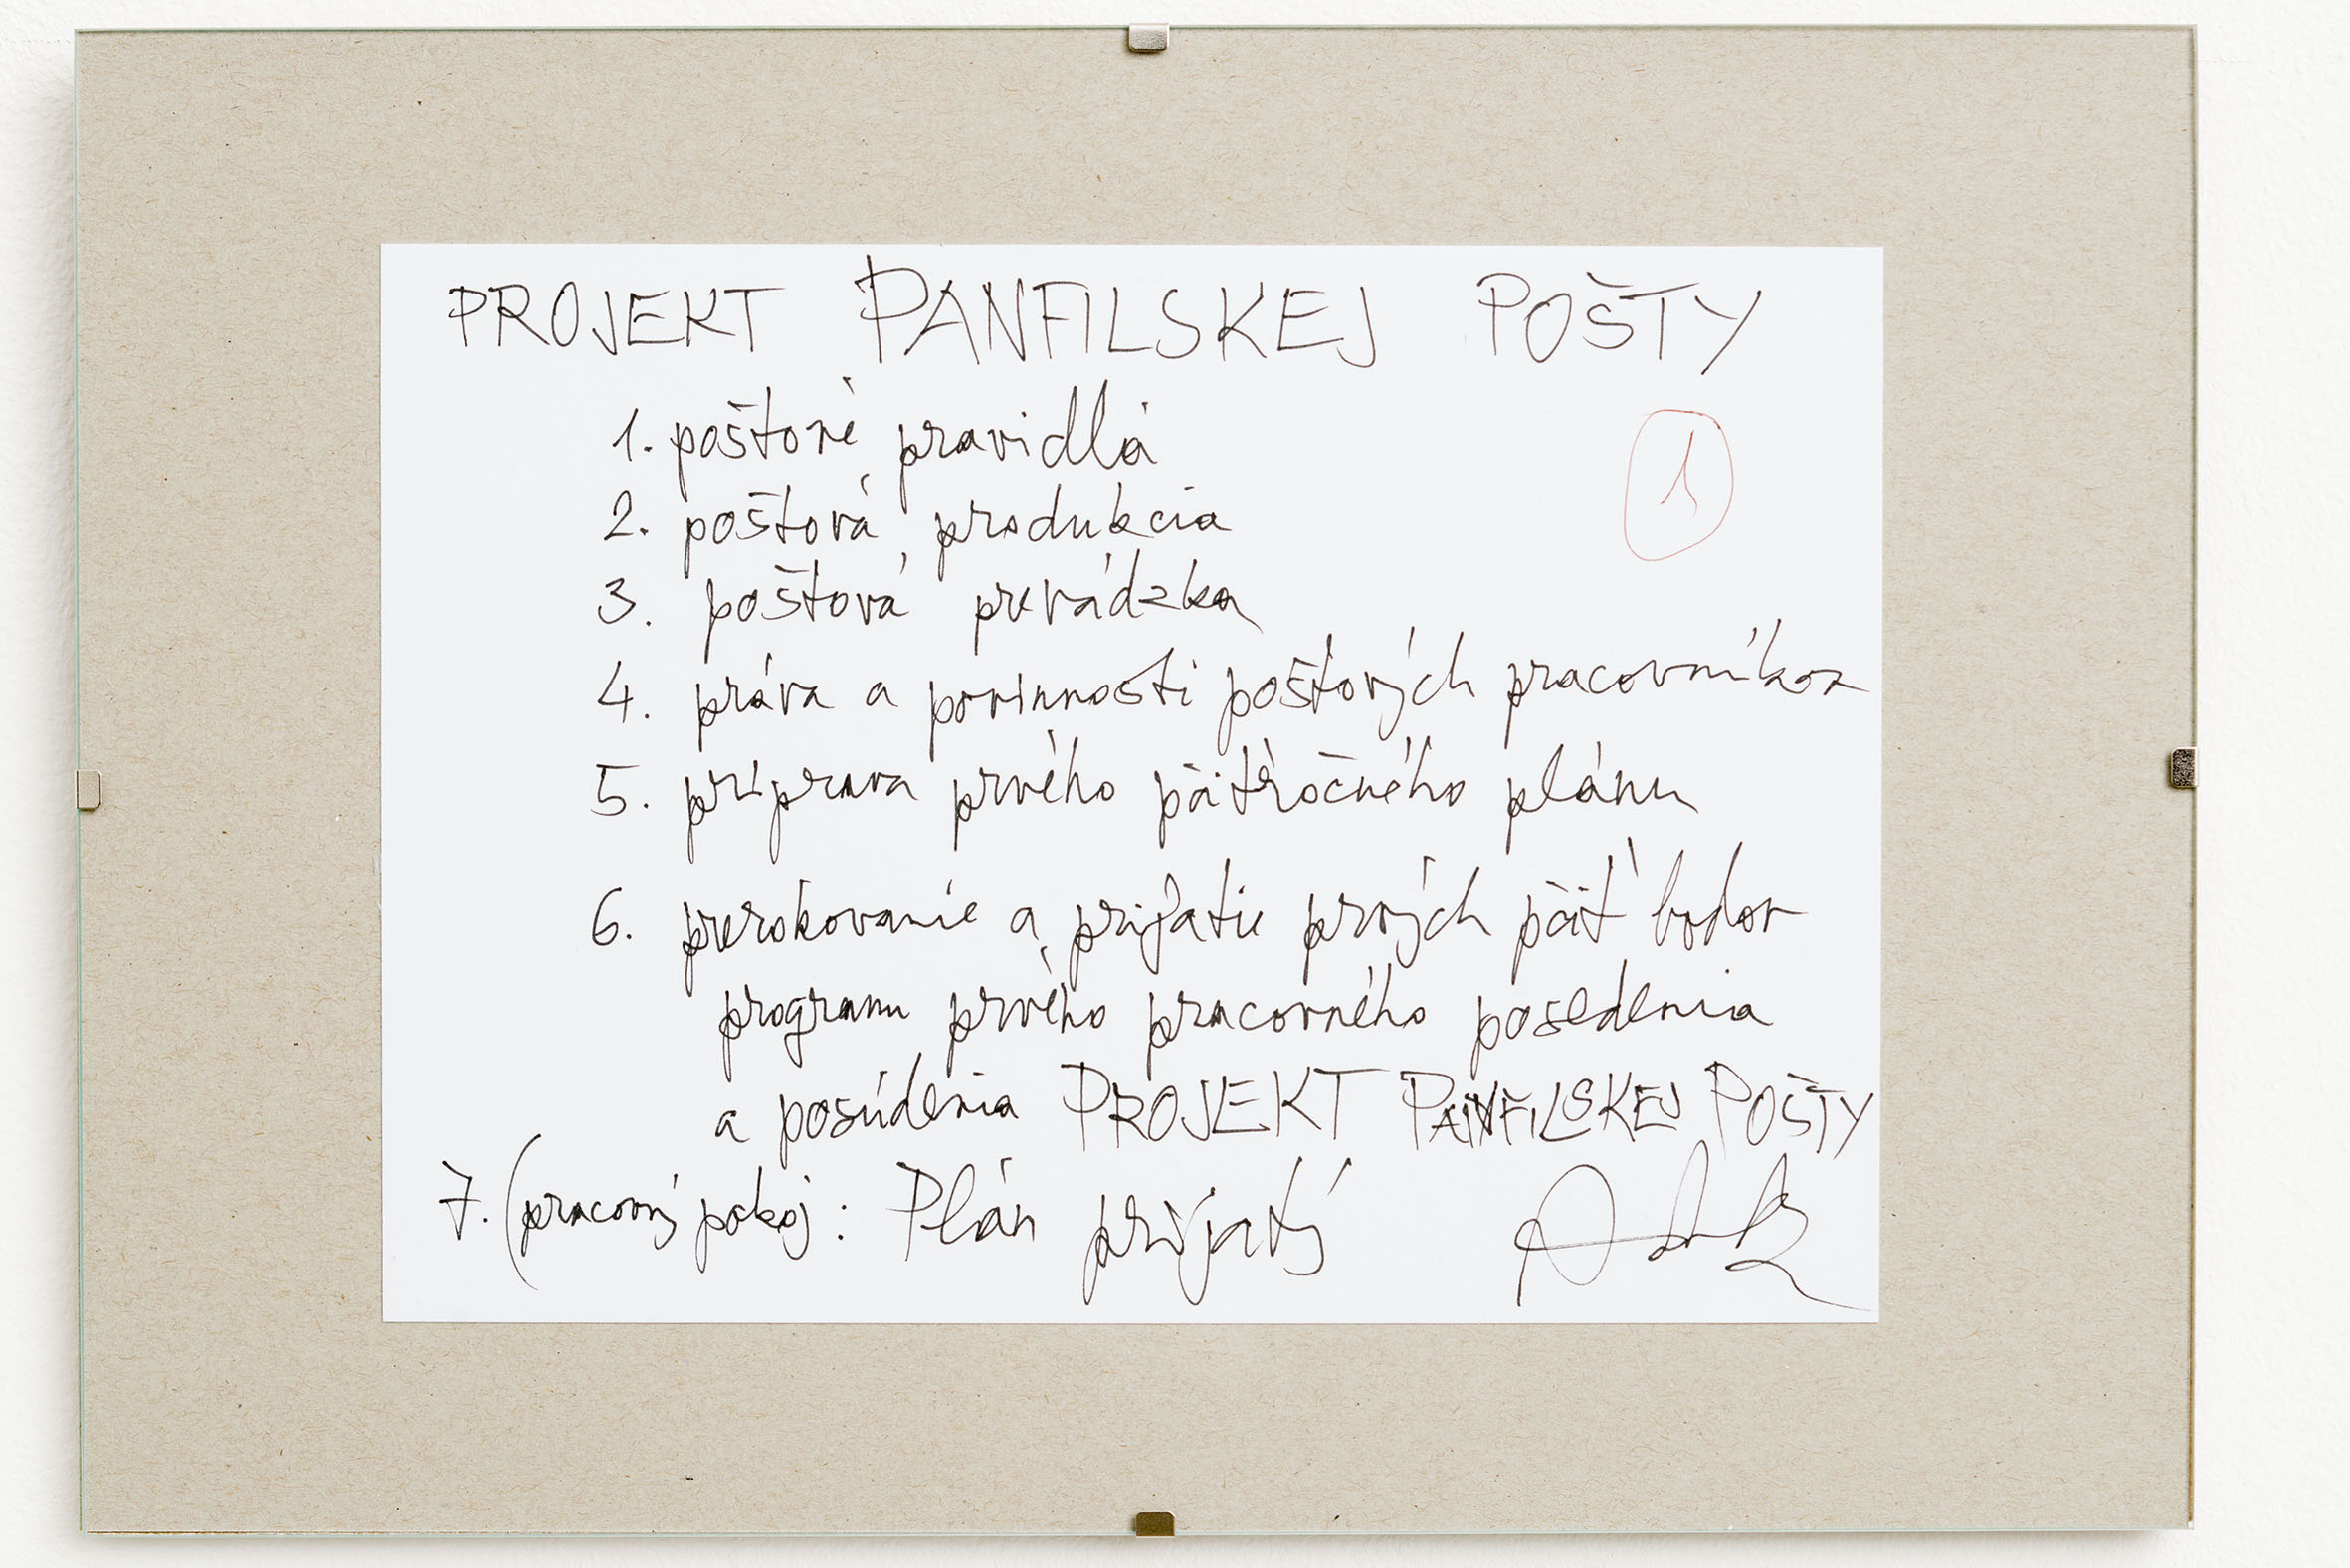 PROJEKT PANFILSKEJ POŠTY
1. poštové pravidlá
1
2. poštová produkcia
3. poštová prevádzka
4. práva a povinnosti poštových pracovníkov
5. príprava prvého päťročného plánu
6. prerokovanie a prijatie prvých päť bodov
programu prvého pracovného posedenia
a posúdenia PROJEKT PANFILSKEJ POŠTY
7. (pracovný pokoj: Plán prijatý